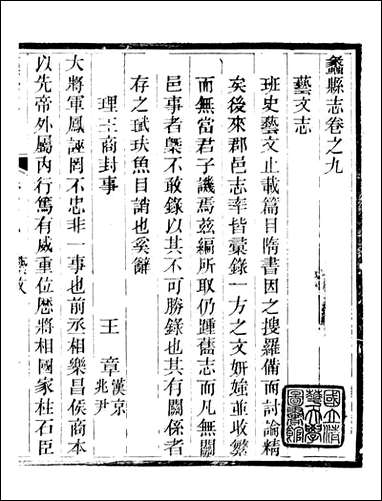 蠡縣志卷之九
藝文志
班史藝文止載篇目隋書因之搜羅備而討論精
矣後來郡邑志率皆彙錄一方之文妍媸並收繁
而無當君子譏焉茲編所取仍踵舊志而凡無關
邑事者槩不敢錄以其不可勝錄也其有關係者
存之珷玞魚目誚也奚辭
理王商封事
王章漢京兆尹
大將軍鳳誣罔不忠非一事也前丞相樂昌侯商本
以先帝外屬內行篤有威重位歷將相國家柱石臣
國立清華大學圖書館